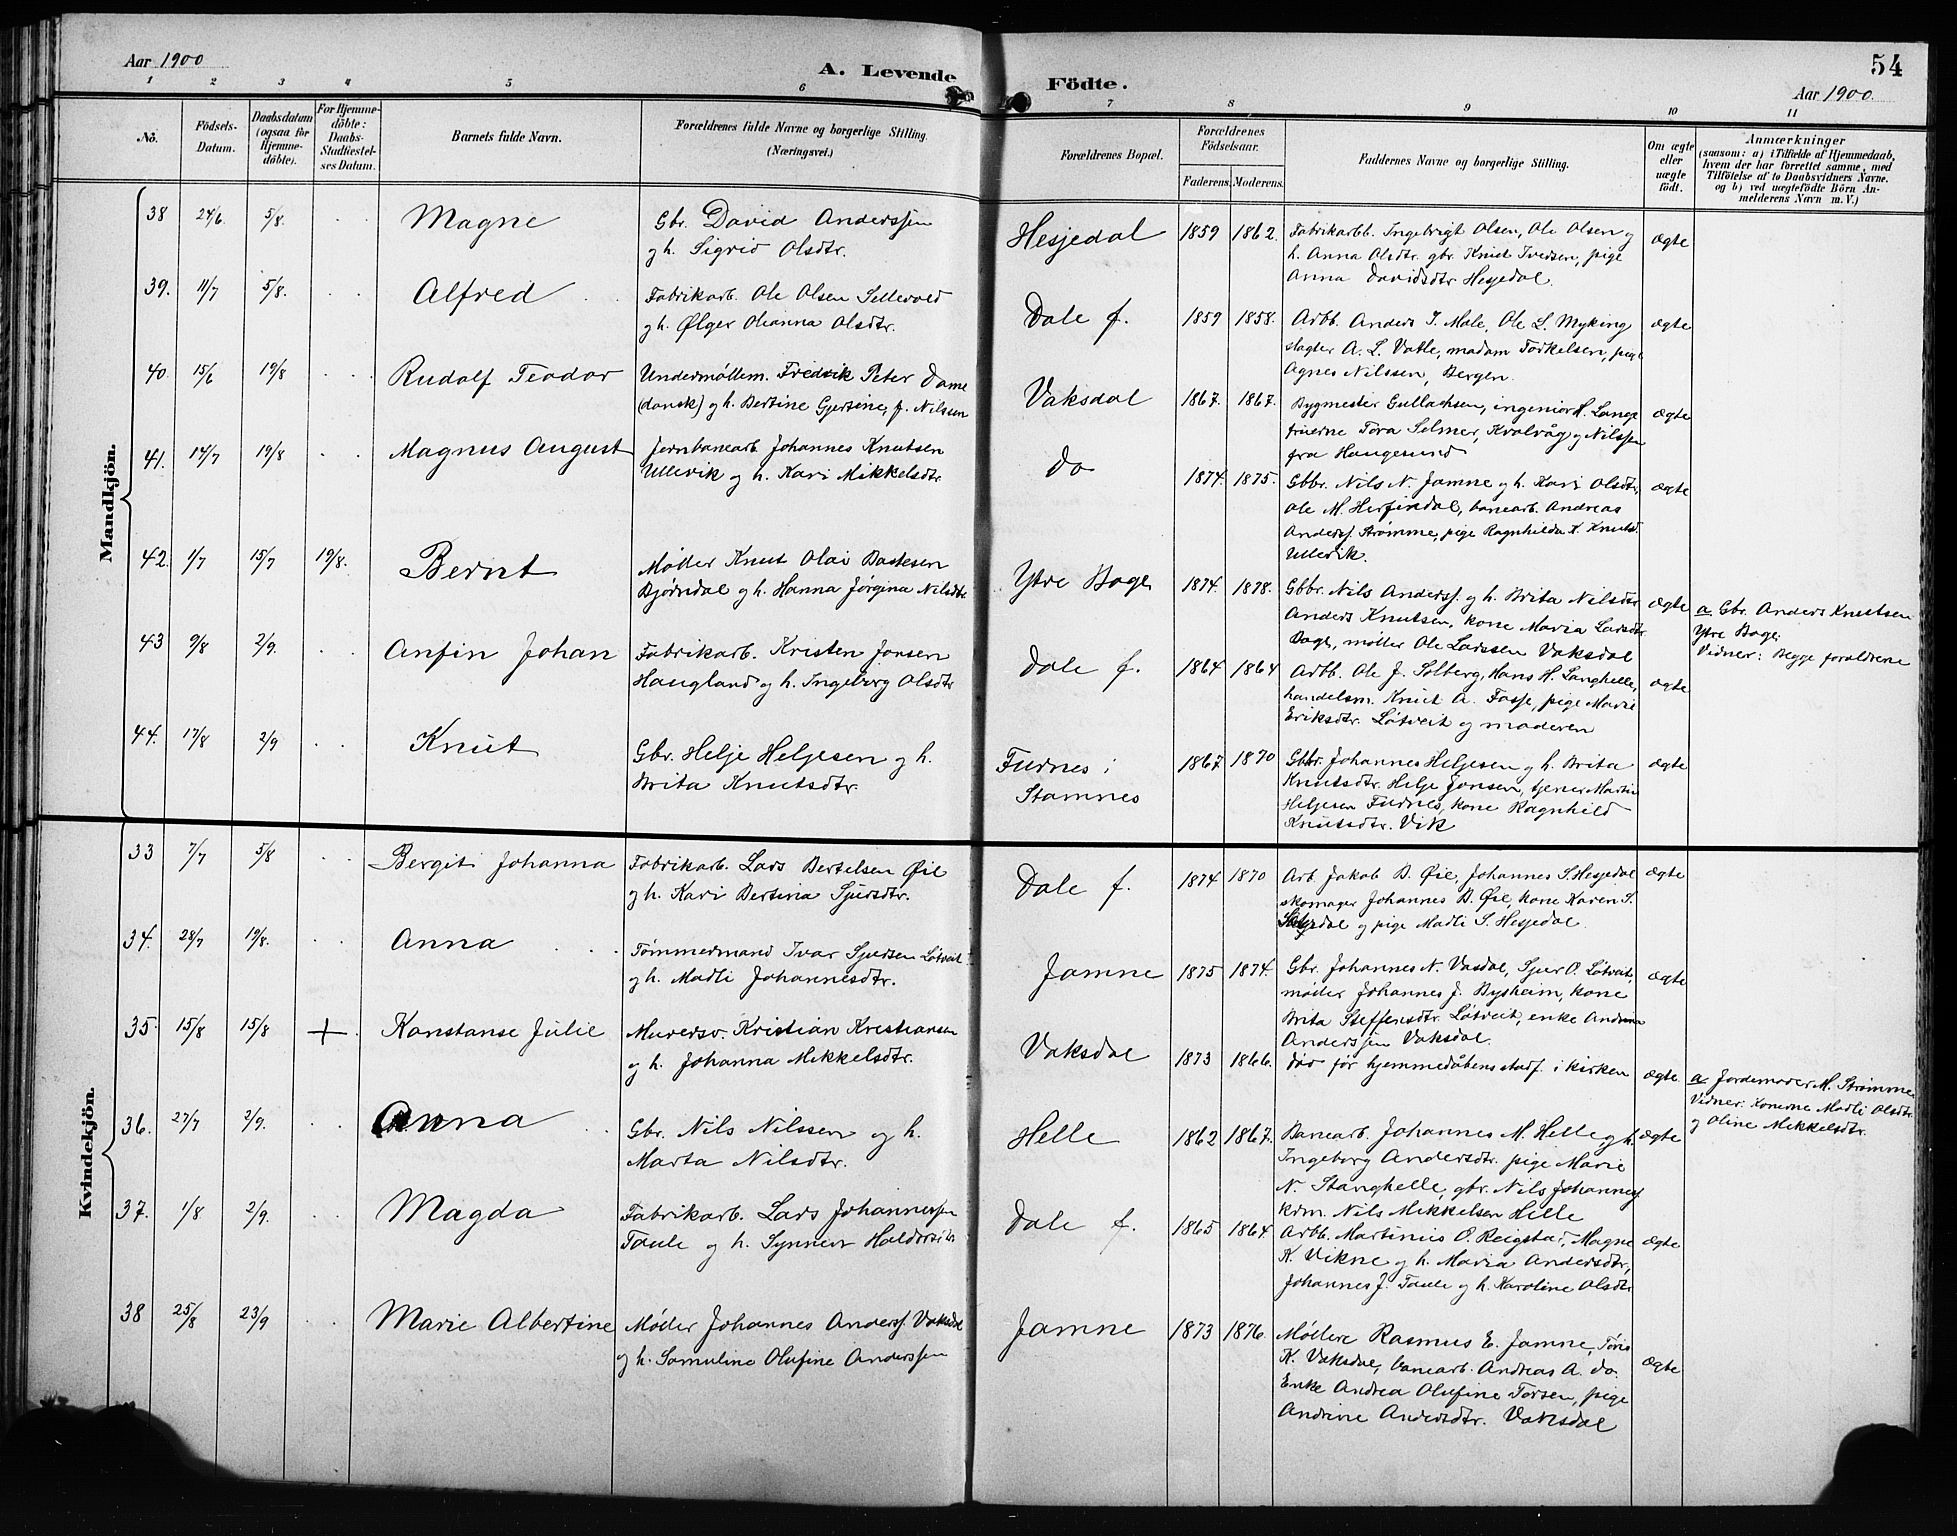 54
Aar 1900
A. Levende Födte.
Aar 1900.
1 2 3 4 5 6 7 8 9 10 11
No.
Födsels-Datum.
Daabsdatum (ogsaa for Hjemme-döbte).
For Hjemme-döbte: Daabs-Stadfæstel-ses Datum.
Barnets fulde Navn.
Forældrenes fulde Navne og borgerlige Stilling.
(Næringsvei.)
Forældrenes Bopæl.
Forældrenes Födselsaar.
Faderens. Moderens.
Faddernes Navne og borgerlige Stilling.
Om ægte eller uægte födt.
Anmærkninger
(saasom: a) i Tilfælde af Hjemmedaab, hvem der har forrettet samme, med Tilföielse af to Daabsvidners Navne. og b) ved uegtefödte Börn An-melderens Navn m. V.)
Mandkjön.
38 24/6 5/8. Magne
Gbr. David Anderssen
og h. Sigrid Olsdtr.
Hesjedal 1859 1862.
Fabrikarbb. Ingebrigt Olsen, Ole Olsen og
h. Anna Olsdtr. gbr. Knut Iversen, pige
Anna Davidsdtr. Hesjedal.
ægte
39. 11/7 5/8. Alfred
Fabrikarb. Ole Olsen Sellevold
og h. Ølger Oleanna Olsdtr.
Dale f. 1859 1858.
Arbb. Anders I. Male, Ole L. Myking
slagter A. L. Vatle, madam Torkelsen, pige
Agnes Nilssen, Bergen.
ægte
40. 15/6 19/8 Rudolf Teodor
Undermøllem. Fredrik Peter Dame
(dansk) og h. Bertine Gjertine, f. Nilsen
Vaksdal 1867. 1867.
Bygmester Gullachsen, ingeniør H. Lange
fruerne Tora Selmer, Kvalvåg og Nilssen
fra Haugesund
ægte
41. 14/7 19/8 Magnus August
Jernbanearb. Johannes Knutsen
Ullevik og h. Kari Mikkelsdtr.
do 1874. 1875.
Gbbr. Nils N. Jamne og h. Kari Olsdtr,
Ole M. Herfindal, banearb. Andreas
Anderss. Strømme, pige Ragnhilda K. Knuts.
Ullevik.
ægte
42. 1/7 15/7 19/8. Bernt
Møller Knut Olai
Bjørndal og h. Hanna Jørgina Nilsdtr.
Ytre Boge 1874. 1878.
Gbbr. Nils Anderss. og h. Brita Nilsdtr
Anders Knutsen, kone Maria Larsdtr
Boge, møller Ole Larssen Vaksdal
ægte
a Gbr. Anders Knutsen
Ytre Boge.
Vidner: Begge forældrene
43 9/8 2/9. Anfin Johan
Fabrikarb. Kristen Jonsen
Haugland og h. Ingeborg Olsdtr
Dale f. 1864 1864
Arbb. Ole J. Solberg, Hans H. Langhelle,
handelsm. Knut A. Fosse, pige Marie
Eriksdtr. Løtveit og moderen
ægte
44. 17/8 2/9 Knut
Gbr. Helje Heljesen og h.
Brita Knutsdtr.
Furnes i
Stamnes
1867. 1870
Gbbr. Johannes Heljesen og h. Brita
Knutsdtr. Helje Jonsen, tjener Martin
Heljesen Furnes, kone Ragnhild
Knutsdtr. Vik
ægte
Kvindekjön.
33 7/7 5/8 Bergit Johanna
Fabrikarb. Lars Bertelsen Øie
og h. Kari Bertina Sjursdtr.
Dale f. 1874 1870
Arb. Jakob B. Øie, Johannes S. Hesjedal
skomager Johannes B. Øie, kone Karen S.
og pige Madli S. Hesjedal.
ægte
34. 28/7 19/8. Anna
Tømmermand Ivar Sjursen Løtveit
og h. Madli Johannesdtr.
Jamne 1875 1874.
Gbr. Johannes N. Vasdal, Sjur O. Løtveit,
møller Johannes J. Bysheim, kone
Brita Steffensdtr. Løtveit, enke Andrea
Anderssen Vaksdal.
ægte
35. 15/8 15/8 + Konstanse Julie
Murersv. Kristian Kristiansen
og h. Johanna Mikkelsdtr.
Vaksdal 1873 1866.
død før hjemmedåbens stadf. i kirken
ægte
a Jordemoder M. Strømme
Vidner: Konerne Madli Olsdtr.
og Oline Mikkelsdtr.
36. 27/7 2/9. Anna
Gbr. Nils Nilssen og h.
Marta Nilsdtr.
Helle 1862 1867.
Banearb. Johannes M. Helle og h.
Ingeborg Andersdtr. pige Marie
N. Stanghelle, gbr. Nils Johanness.
kdm. Nils Mikkelsen Helle
ægte
37. 1/8 2/9. Magda
Fabrikarb. Lars Johannessen
Taule og h. Synneva
Dale f. 1865 1864.
Arbb. Martinius O. Reigstad, Magne
K. Vikne og h. Maria Andersdtr.,
Johannes J. Taule og h. Karoline Olsdtr
ægte
38 25/8 23/9 Marie Albertine
Møller Johannes Anderss. Vaksdal
og h. Samuline Olufine Anderssen
Jamne 1873 1876.
Møllere Rasmus E. Jamne, Tøris
K. Vaksdal, banearb. Andreas A. do.
Enke Andrea Olufine Torsen, pige
Andrine Andersdtr. Vaksdal
ægte